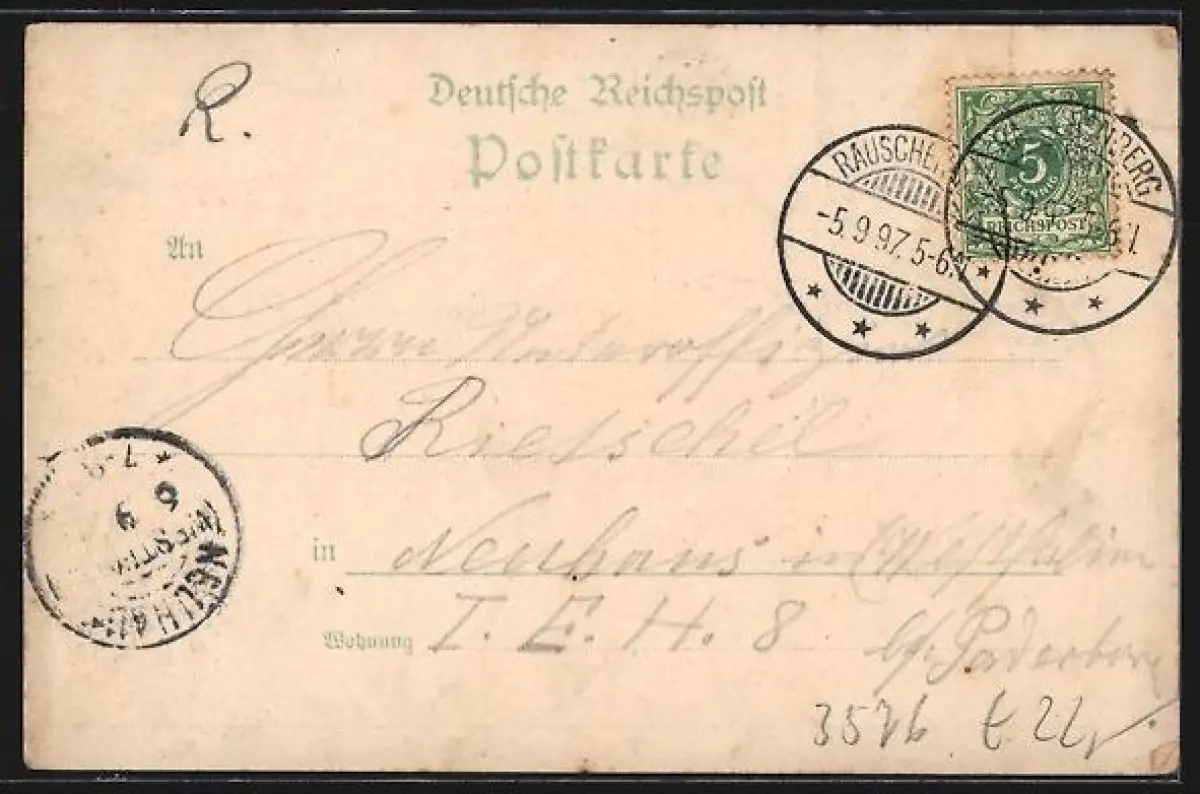 R.
Deutsche Reichspost
Postkarte
5
PFENNIG
REICHSPOST
RAUSCHEN
-5.9.97. 5-6
BERG
An
Herrn Unteroffizier
Rietschel
in Neuhaus in Westfalen
Wohnung I. E. H. 8 bei Paderborn
NEUHAUS
WESTF
6 9
7-8